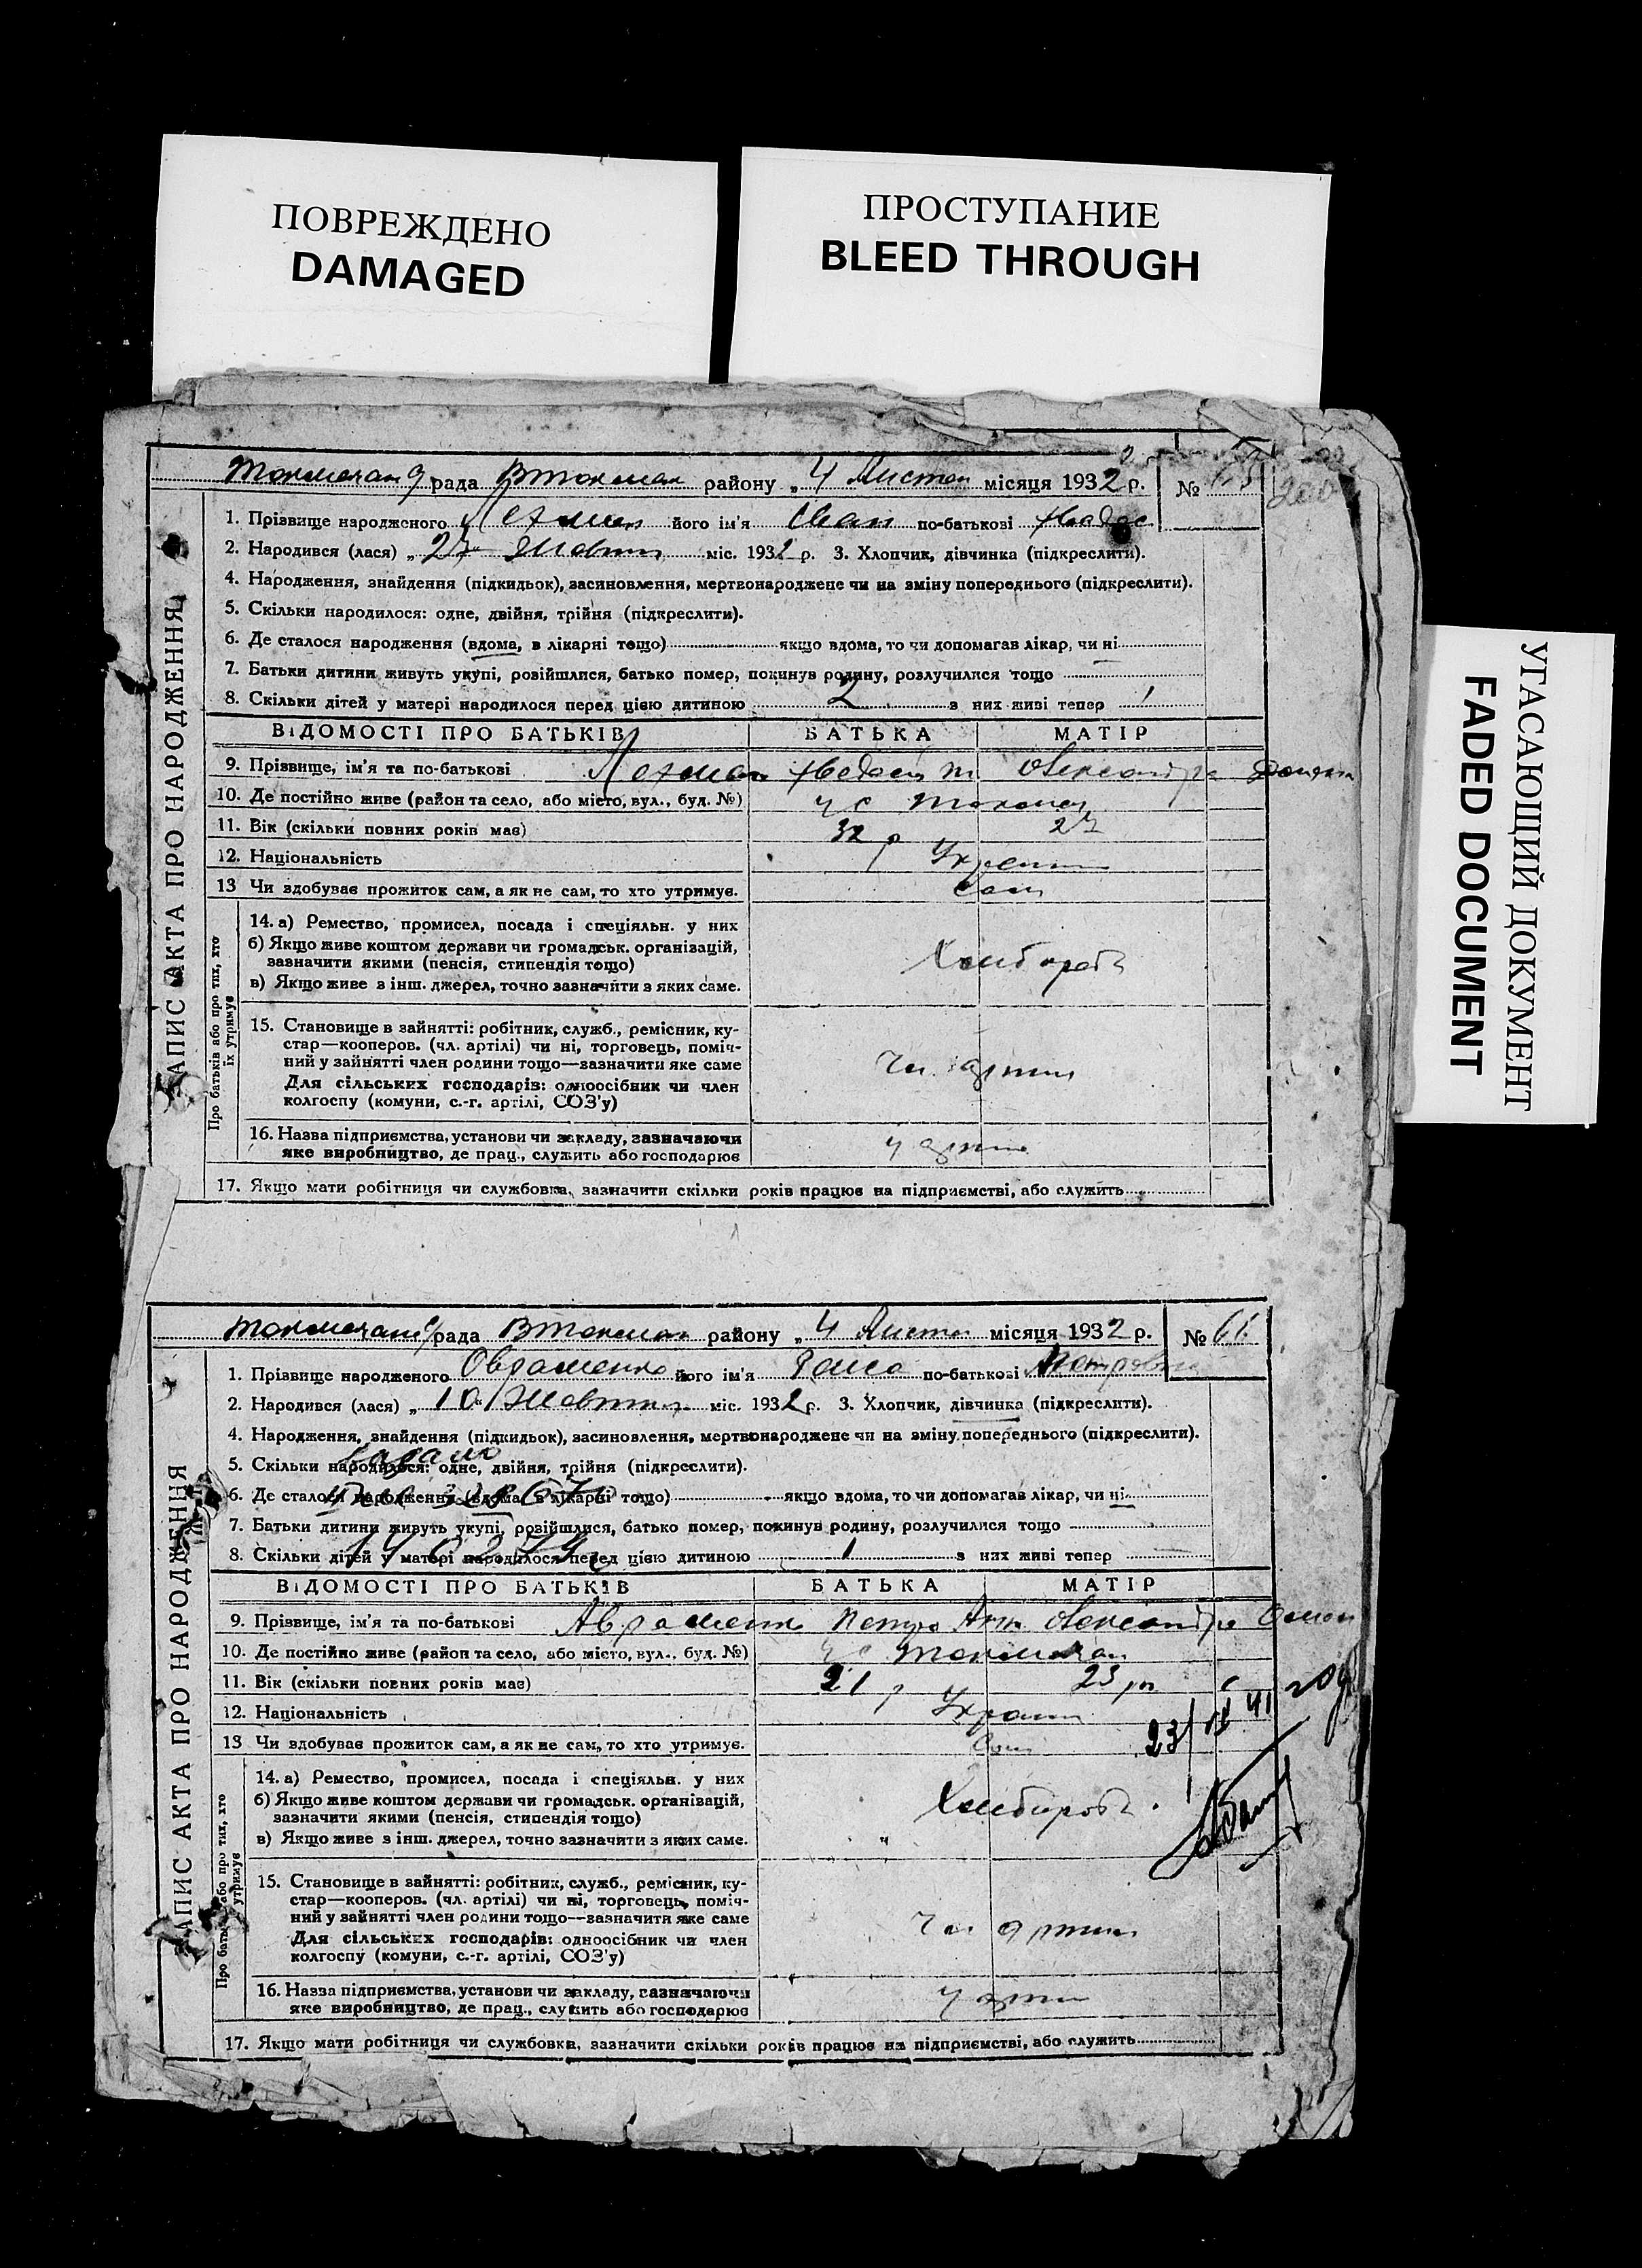 ПОВРЕЖДЕНО
DAMAGED
ПРОСТУПАНИЕ
BLEED THROUGH
УГАСАЮЩИЙ ДОКУМЕНТ
FADED DOCUMENT
рада Втокмак району „ 4 Листоп місяця 1932 р. №
1. Прізвище народженого його ім'я Іван по-батькові
2. Народився (лася) „ 27 Жовтня міс. 1932 р. 3. Хлопчик, дівчинка (підкреслити).
4. Народження, знайдення (підкидьок), засиновлення, мертвонароджене чи на зміну попереднього (підкреслити).
5. Скільки народилося: одне, двійня, трійня (підкреслити).
6. Де сталося народження (вдома, в лікарні тощо) якщо вдома, то чи допомагав лікар, чи ні
7. Батьки дитини живуть укупі, розійшлися, батько помер, покинув родину, розлучилися тощо
8. Скільки дітей у матері народилося перед цією дитиною 2 з них живі тепер 1
ЗАПИС АКТА ПРО НАРОДЖЕННЯ
ВІДОМОСТІ ПРО БАТЬКІВ БАТЬКА МАТІР
9. Прізвище, ім'я та по-батькові Олександра
10. Де постійно живе (район та село, або місто, вул., буд. №) у с
11. Вік (скільки повних років має) 32 р 27
12. Національність Українц
13 Чи здобуває прожиток сам, а як не сам, то хто утримує. Сам
Про батьків або про тих, хто їх утримує
14. а) Ремество, промисел, посада і спеціяльн. у них
б) Якщо живе коштом держави чи громадськ. організацій,
зазначити якими (пенсія, стипендія тощо) Хлібороб
в) Якщо живе з інш. джерел, точно зазначити з яких саме.
15. Становище в зайнятті: робітник, служб., ремісник, ку-
стар—кооперов. (чл. артілі) чи ні, торговець, поміч-
ний у зайнятті член родини тощо—зазначити яке саме Чл. артіл
Для сільських господарів: одноосібник чи член
колгоспу (комуни, с.-г. артілі, СОЗ'у)
16. Назва підприємства, установи чи закладу, зазначаючи у арті
яке виробництво, де прац., служить або господарює
17. Якщо мати робітниця чи службовка, зазначити скільки років працює на підприємстві, або служить
рада Втокмак району „ 4 Листоп місяця 1932 р. № 66
1. Прізвище народженого Овраменко його ім'я Раиса по-батькові Петровна
2. Народився (лася) „ 10 Жовтня міс. 1932 р. 3. Хлопчик, дівчинка (підкреслити).
4. Народження, знайдення (підкидьок), засиновлення, мертвонароджене чи на зміну попереднього (підкреслити).
5. Скільки народилося: одне, двійня, трійня (підкреслити).
6. Де сталося народження (вдома, в лікарні тощо) якщо вдома, то чи допомагав лікар, чи ні
7. Батьки дитини живуть укупі, розійшлися, батько помер, покинув родину, розлучилися тощо
8. Скільки дітей у матері народилося перед цією дитиною 1 з них живі тепер
ЗАПИС АКТА ПРО НАРОДЖЕННЯ
ВІДОМОСТІ ПРО БАТЬКІВ БАТЬКА МАТІР
9. Прізвище, ім'я та по-батькові Авраменк Петро Олександра
10. Де постійно живе (район та село, або місто, вул., буд. №) у с Токмачан
11. Вік (скільки повних років має) 21 р 23 рр
12. Національність Українц
13 Чи здобуває прожиток сам, а як не сам, то хто утримує. Сам
23/ІХ 41
14. а) Ремество, промисел, посада і спеціяльн. у них
б) Якщо живе коштом держави чи громадськ. організацій,
зазначити якими (пенсія, стипендія тощо) Хлібороб
в) Якщо живе з інш. джерел, точно зазначити з яких саме.
15. Становище в зайнятті: робітник, служб., ремісник, ку-
стар—кооперов. (чл. артілі) чи ні, торговець, поміч-
ний у зайнятті член родини тощо—зазначити яке саме Чл артіл
Для сільських господарів: одноосібник чи член
колгоспу (комуни, с.-г. артілі, СОЗ'у)
16. Назва підприємства, установи чи закладу, зазначаючи у арті
яке виробництво, де прац., служить або господарює
17. Якщо мати робітниця чи службовка, зазначити скільки років працює на підприємстві, або служить